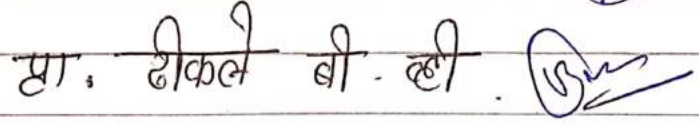 प्रा. ढीकले बी. व्ही.